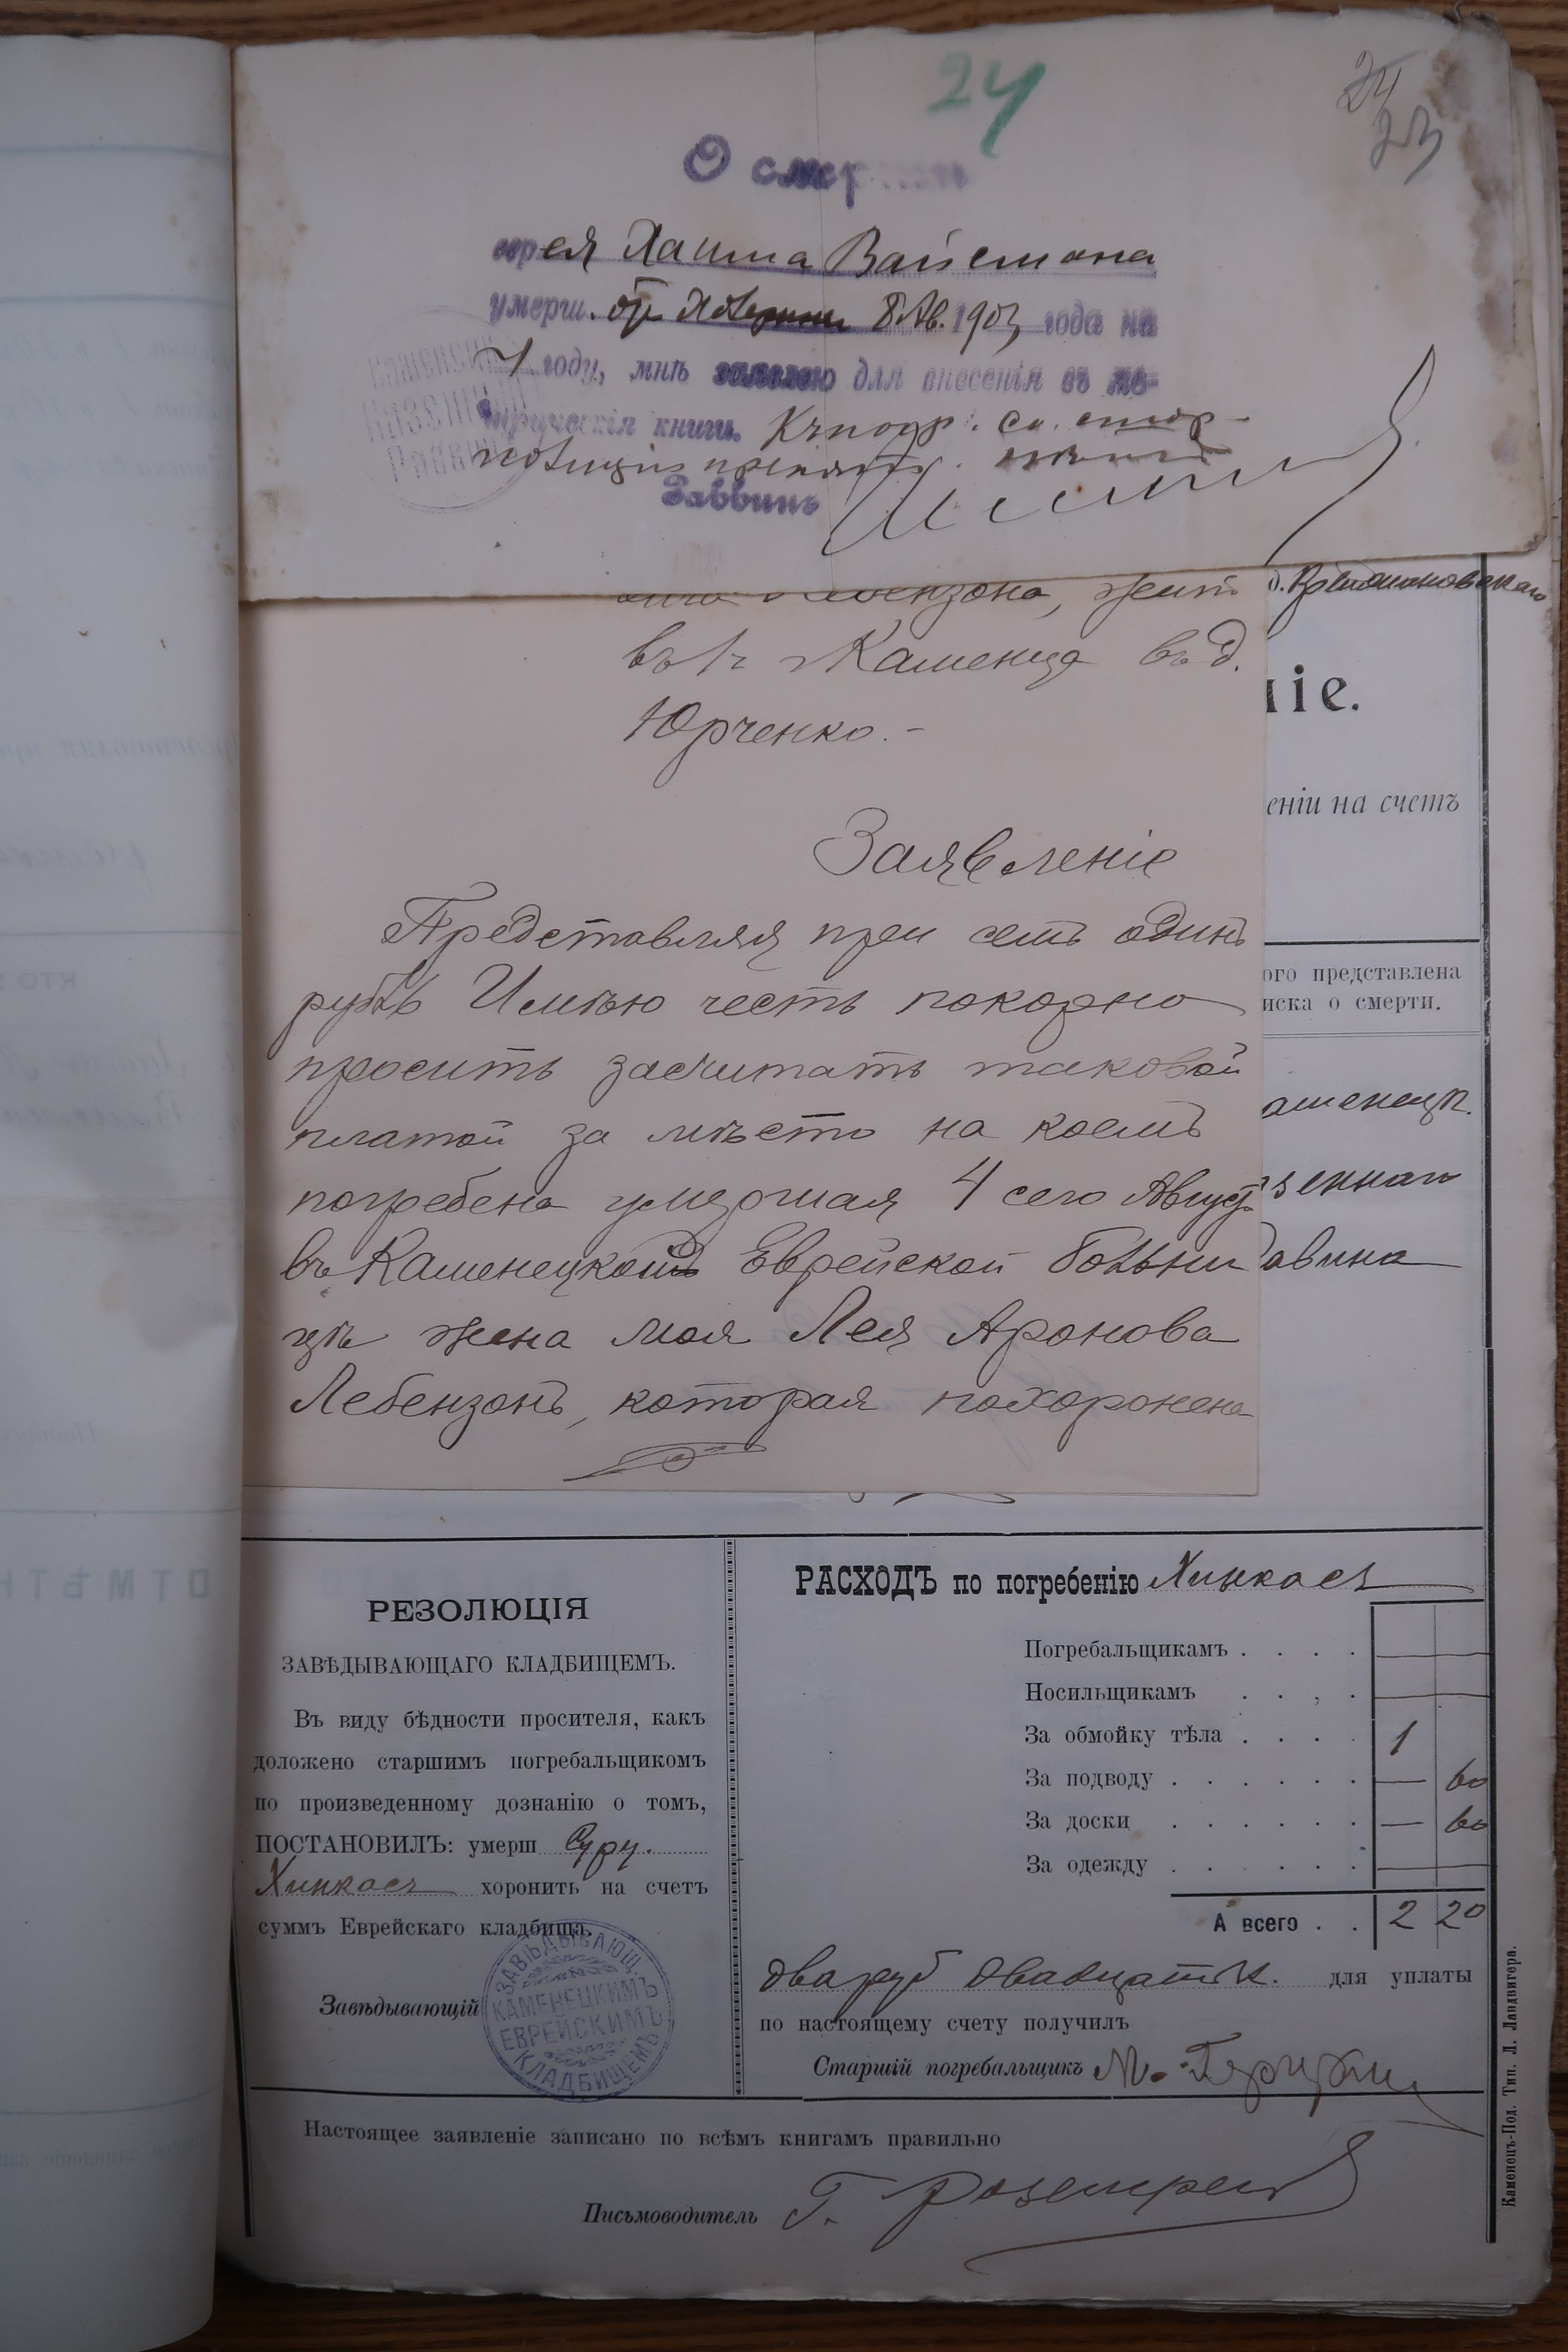 24
24
23
О смерти
еврея Хаима Вайсмана
умерш. 8 Ав. 1903 года на
году, мнѣ заявлено для внесенія въ ме-
трическія книги.
Раввинъ
Лебензона, жит
въ г. Каменцѣ въ д.
Юрченко.-
Заявленіе
Представляя при семъ одинъ
рубль Имѣю честь покорно
просить засчитать таковой
платой за мѣсто на коемъ
погребена умершая 4 сего Август
въ Каменецкой Еврейской больни
цѣ жена моя Лея Аронова
Лебензонъ, которая похоронена
ніе.
еніи на счетъ
ого представлена
иска о смерти.
аменецк.
зеннаго
авина
РЕЗОЛЮЦІЯ
ЗАВѢДЫВАЮЩАГО КЛАДБИЩЕМЪ.
Въ виду бѣдности просителя, какъ
доложено старшимъ погребальщикомъ
по произведенному дознанію о томъ,
ПОСТАНОВИЛЪ: умерш Суру.
Хинкась хоронить на счетъ
суммъ Еврейскаго кладбища.
Завѣдывающій
ЗАВѢДЫВАЮЩ.
КАМЕНЕЦКИМЪ
ЕВРЕЙСКИМЪ
КЛАДБИЩЕМЪ
РАСХОДЪ по погребенію Хинкась
Погребальщикамъ . . . .
Носильщикамъ . . , .
За обмойку тѣла . . . . 1
За подводу . . . . . . — 60
За доски . . . . . . — 60
За одежду . . . . . .
А всего . . 2 20
два руб двадцать к. для уплаты
по настоящему счету получилъ
Старшій погребальщикъ М.
Настоящее заявленіе записано по всѣмъ книгамъ правильно
Письмоводитель Г.
Каменецъ-Под. Тип. Л. Ландвигера.